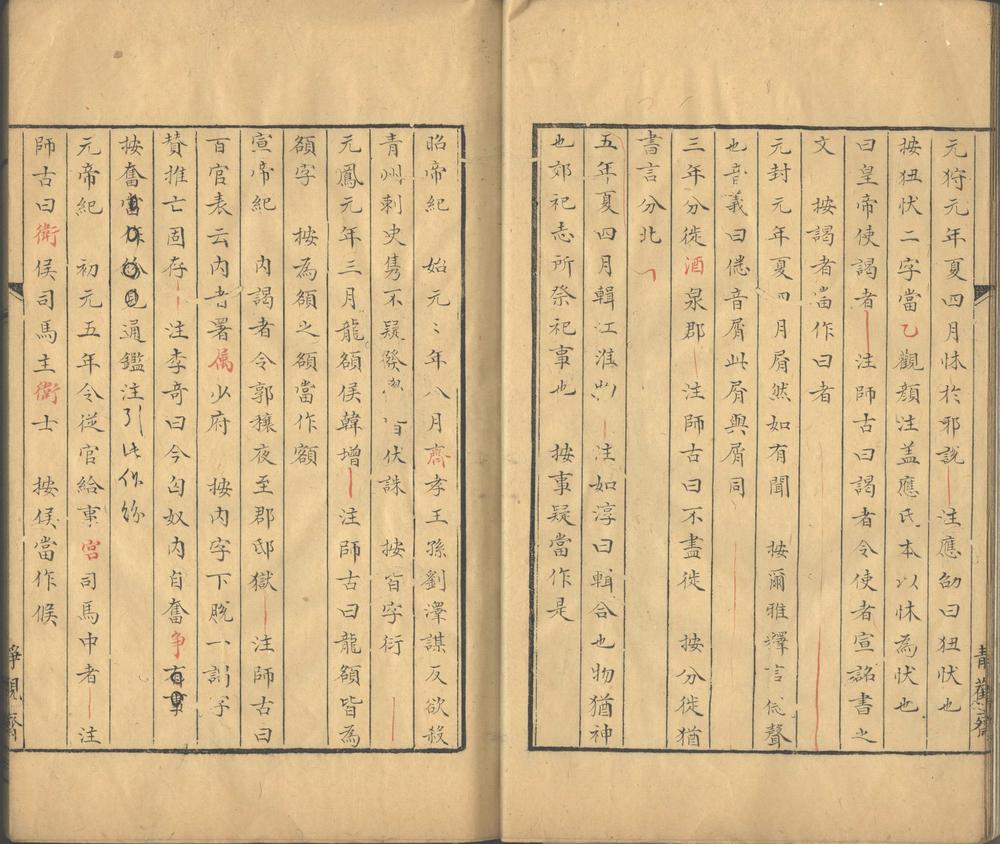 元狩元年夏四月怵於邪說 注應劭曰狃伏也
按狃伏二字當乙觀顏注盖應氏本以怵為伏也
曰皇帝使謁者 注師古曰謁者令使者宣詔書之
文 按謁者當作曰者
元封元年夏四月屑然如有聞 按爾雅釋言僁聲
也音義曰僁音屑此屑與屑同
三年分徙酒泉郡 注師古曰不盡徙 按分徙猶
書言分北
五年夏四月輯江淮 注如淳曰輯合也物猶神
也郊祀志所祭祀事也 按事疑當作是
昭帝紀 始元二年八月齊孝王孫劉澤謀反欲殺
青州刺史雋不疑發 伏誅 按官字衍
元鳳元年三月龍頟侯韓增 注師古曰龍頟皆為
頟字 按為頟之頟當作額
宣帝紀 內謁者令郭穰夜至郡邸獄 注師古曰
百官表云內者署属少府 按內字下脫一謁字
賛推亡固存 注李奇曰今匈奴內自奮争
按奮 通鑑注引此作紛
元帝紀 初元五年令從官給事宮司馬中者 注
師古曰衛侯司馬主衛士 按侯當作候
靜觀齋